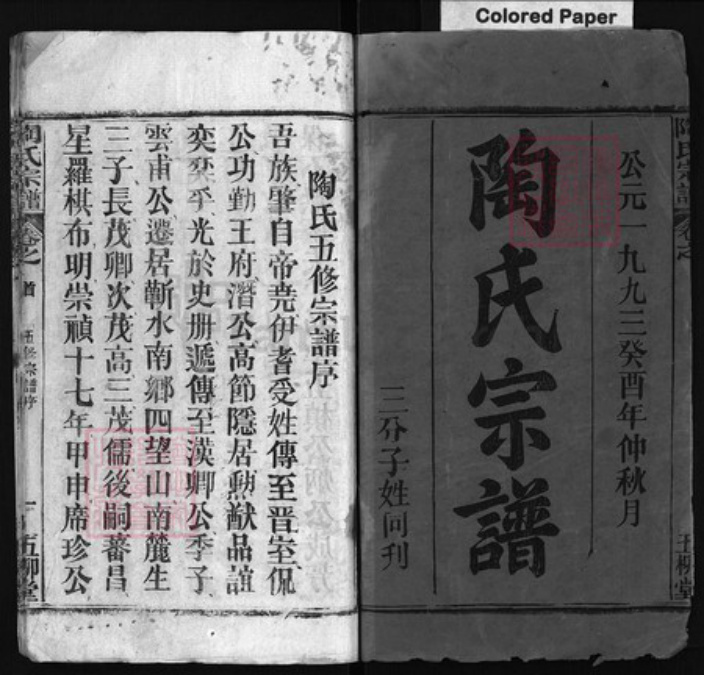 Colored Paper
公元一九九三癸酉年仲秋月
陶氏宗譜
三分子姓同刊
陶氏宗譜
卷之
五柳堂
陶氏五修宗譜序
吾族肇自帝堯伊耆受姓傳至晋室侃
公功勤王府潛公高節隱居勲猷品誼
奕奕乎光於史册遞傳至漢卿公季子
雲甫公遷居蘄水南鄉四望山南麓生
三子長茂卿次茂高三茂儒後嗣蕃昌
星羅棋布明崇禎十七年甲申席珍公
陶氏宗譜
卷之首
五修宗譜序
一
五柳堂